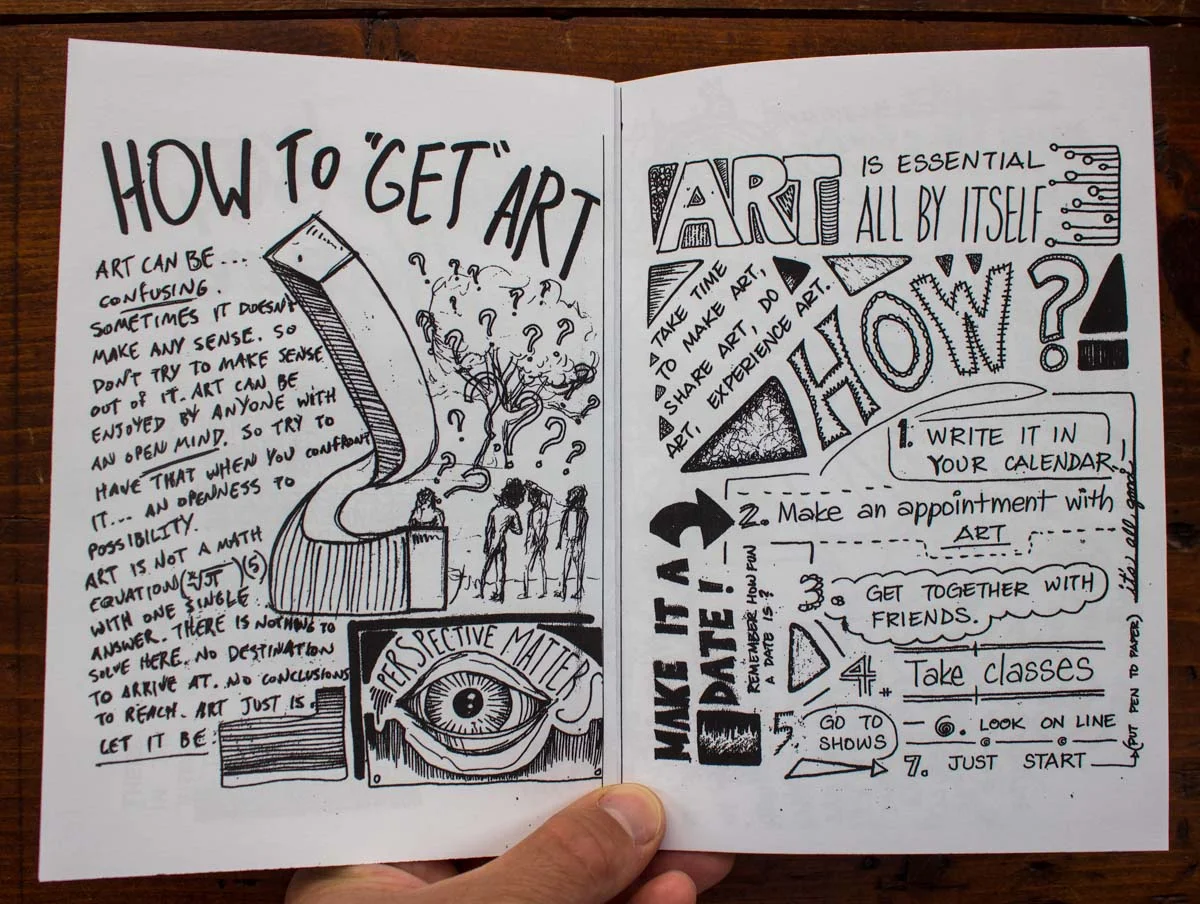 HOW TO "GET" ART
ART CAN BE ...
CONFUSING.
SOMETIMES IT DOESN'T
MAKE ANY SENSE. SO
DON'T TRY TO MAKE SENSE
OUT OF IT. ART CAN BE
ENJOYED BY ANYONE WITH
AN OPEN MIND. SO TRY TO
HAVE THAT WHEN YOU CONFRONT
IT... AN OPENNESS TO
POSSIBILITY.
ART IS NOT A MATH
EQUATION
WITH ONE SINGLE
ANSWER. THERE IS NOTHING TO
SOLVE HERE. NO DESTINATION
TO ARRIVE AT. NO CONCLUSIONS
TO REACH. ART JUST IS.
LET IT BE.
PERSPECTIVE MATTERS
ART IS ESSENTIAL
ALL BY ITSELF
TAKE TIME
TO MAKE ART,
SHARE ART, DO
ART, EXPERIENCE ART.
HOW?!
MAKE IT A
DATE!
REMEMBER HOW FUN
A DATE IS?
1. WRITE IT IN
YOUR CALENDAR.
2. Make an appointment with
ART
3. GET TOGETHER WITH
FRIENDS.
4. Take classes
5. GO TO
SHOWS
6. LOOK ON LINE
7. JUST START
(PUT PEN TO PAPER)
it's all good